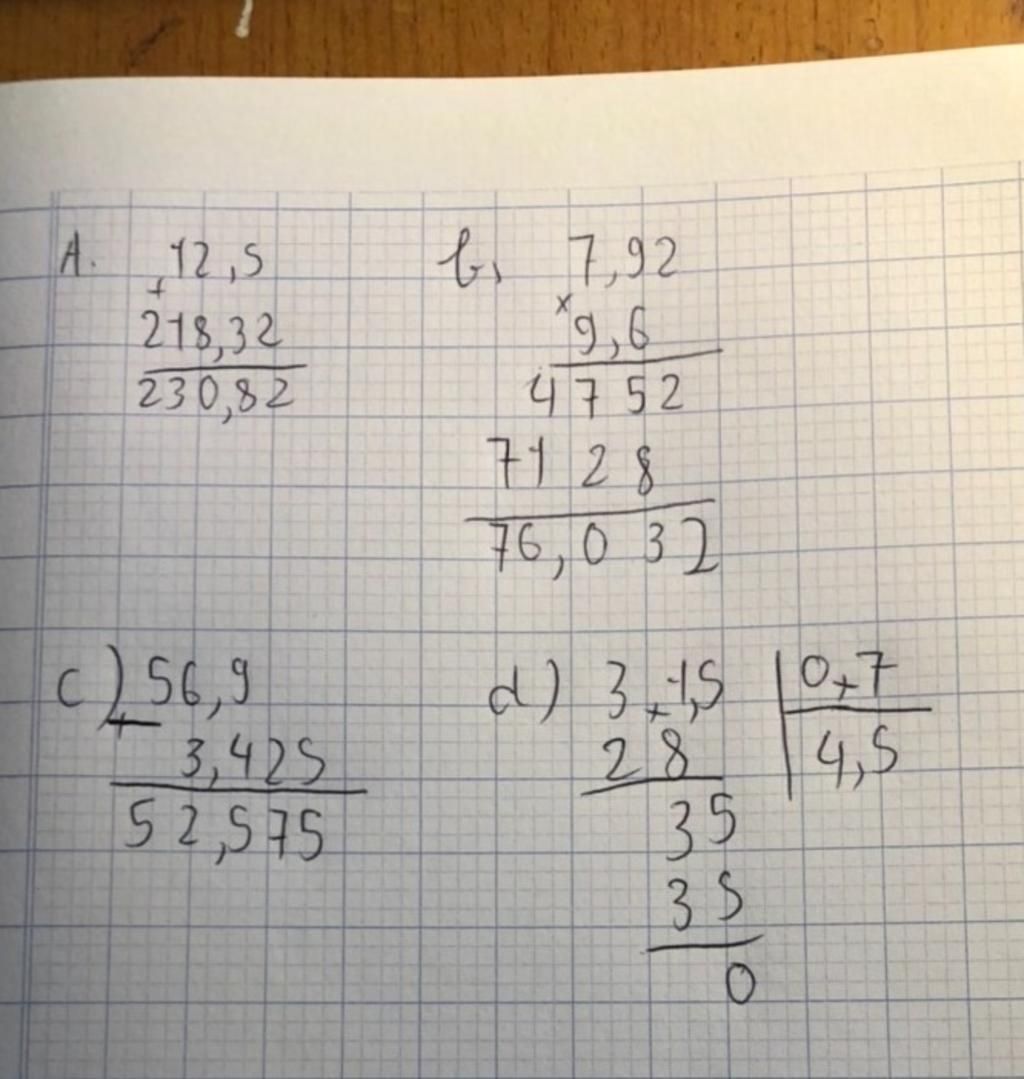 A. 12,5
+
218,32
230,82
b, 7,92
x
9,6
4752
7128
76,032
c) 56,9
-
3,425
52,575
d) 3,1,5 0,7
28 4,5
35
35
0